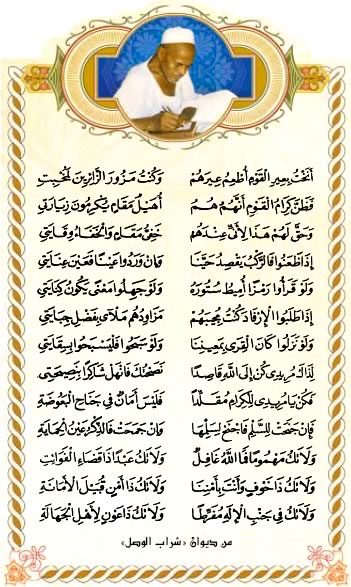 أنختُ بعير القوم أطعم عيرهم وكنت مزور الزائرين لمحبتي
فظن كرام القوم أنهم هم أهيل مقام يكرمون زيارتي
وحق لهم هذا لأني عندهم خفي مقام والخفاء وقايتي
إذا ظعنوا فالركب يقصد حينا وإن وردوا عينا فعين عنايتي
ولو قرأوا رمزا أميط ستوره ولو جهلوا معنى يكون كنايتي
إذا طلبوا الإرفاد كنت مجيبهم مزاودهم ملآى بفضل جبايتي
ولو نزلوا كان القرى بيميننا ولو سبحوا فليسبحوا
لذاك مريدي كن إلى الله قاصدا نصحتك فانهل شاكرا
فكن يا مريدي للكرام مقلدا فليس أمان في جناح البعوضة
فإن جنحت للسلم فاجنح لسلمها وإن جمحت فالذكر عين الحماية
ولا تك مهموما فما الله غافل ولا تك عبدا ذا قضاء الفوائت
ولا تك ذا خوف وأنت بأمننا ولا تك ذا أمن قبيل الأمانة
ولا تك في جنب الإله مفرطا ولا تك ذا عون لأهل الجهالة
من ديوان «شراب الوصل»